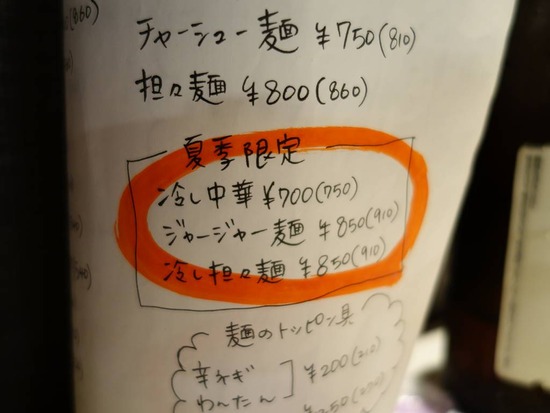 (860)
チャーシュー麺 ¥750(810)
担々麺 ¥800(860)
夏季限定
冷し中華 ¥700(750)
ジャージャー麺 ¥850(910)
冷し担々麺 ¥850(910)
麺のトッピン具
辛ネギ ¥200(210)
わんたん